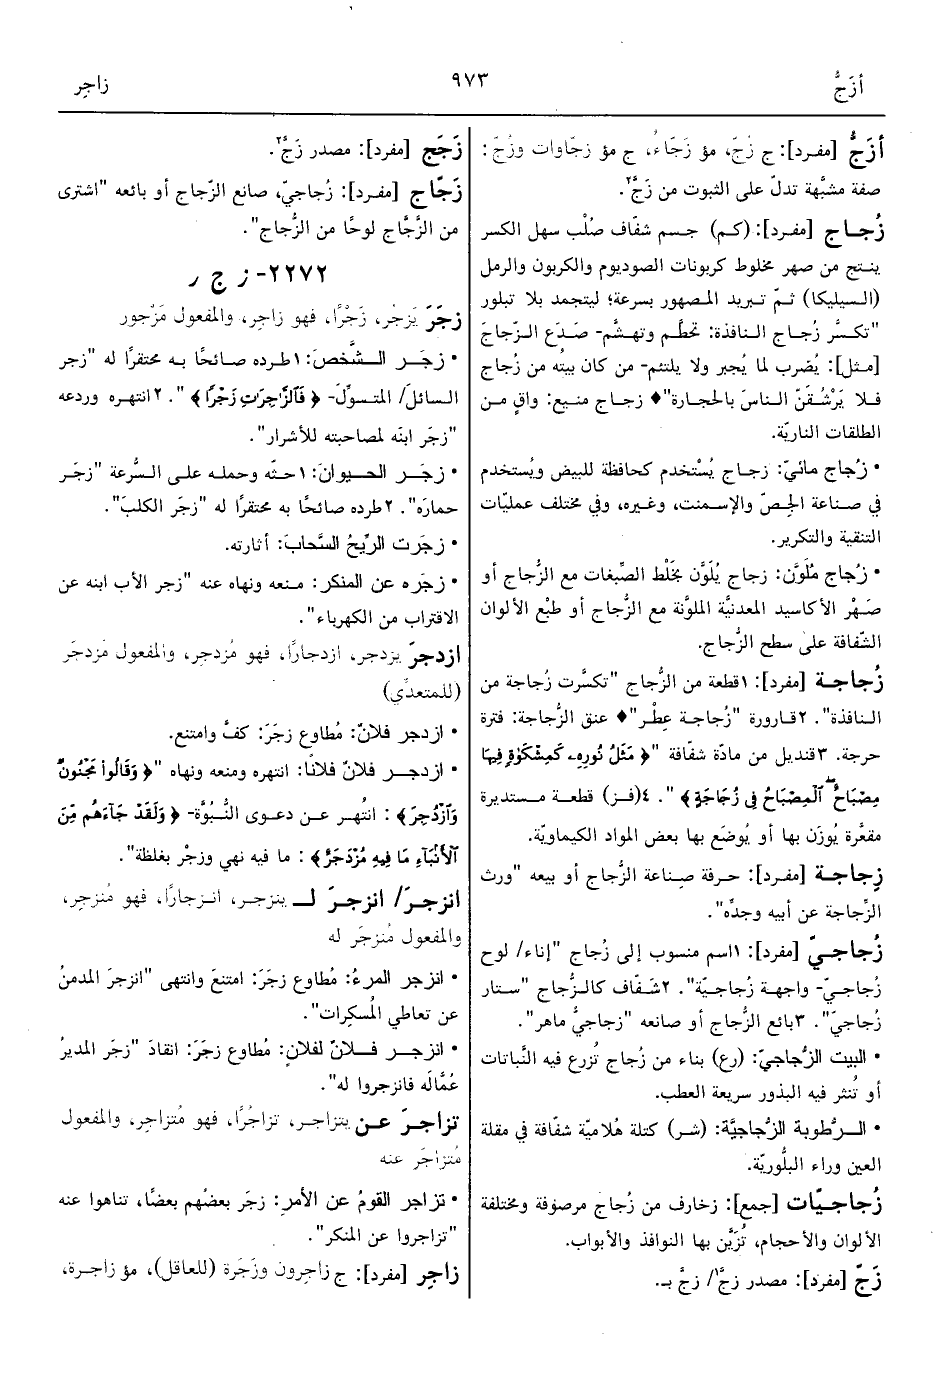 أزَجُّ
٩٧٣
زاجِر
أزَجُّ [مفرد]: ج زُجّ، مؤ زَجَّاءُ، ج مؤ زجّاوات وزُجّ:
صفة مشبَّهة تدلّ على الثبوت من زَجَّ٢.
زُجاج [مفرد]: (كم) جسم شفّاف صُلْب سهل الكسر
ينتج من صهر مخلوط كربونات الصوديوم والكربون والرمل
(السيليكا) ثمّ تبريد المصهور بسرعة؛ ليتجمد بلا تبلور
"تكسَّر زُجاج النافذة: تحطَّم وتهشَّم- صَدَع الزّجاجَ
[مثل]: يُضرب لما يُجبر ولا يلتئم- من كان بيتُه من زُجاج
فلا يَرْشُقَنّ الناسَ بالحجارة"♦ زجاج منيع: واقٍ من
الطلقات الناريّة.
• زُجاج مائيّ: زجاج يُسْتخدم كحافظة للبيض ويُستخدم
في صناعة الجصّ والإسمنت، وغيره، وفي مختلف عمليّات
التنقية والتكرير.
• زُجاج مُلوَّن: زجاج يُلَوَّن بخَلْط الصِّبغات مع الزُّجاج أو
صَهْر الأكاسيد المعدنيَّة الملوَّنة مع الزُّجاج أو طبْع الألوان
الشّفافة على سطح الزُّجاج.
زُجاجة [مفرد]: ١قطعة من الزُّجاج "تكسَّرت زُجاجة من
النافذة". ٢قارورة "زُجاجة عِطْر"♦ عنق الزُّجاجة: فترة
حرجة. ٣قنديل من مادّة شفّافة "﴿مَثَلُ نُورِهِۦ كَمِشْكَوٰةٍ فِيهَا
مِصْبَاحٌ ۖ ٱلْمِصْبَاحُ فِى زُجَاجَةٍ﴾". ٤(فز) قطعة مستديرة
مقعَّرة يُوزَن بها أو يُوضَع بها بعض المواد الكيماويّة.
زِجاجة [مفرد]: حرفة صِناعة الزُّجاج أو بيعه "ورث
الزِّجاجة عن أبيه وجدِّه".
زُجاجيّ [مفرد]: ١اسم منسوب إلى زُجاج "إناء/ لوح
زُجاجيّ- واجهة زُجاجيّة". ٢شَفّاف كالزُّجاج "ستار
زُجاجيّ". ٣بائع الزُّجاج أو صانعه "زجاجيُّ ماهر".
• البيت الزُّجاجيّ: (رع) بناء من زُجاج تُزرع فيه النَّباتات
أو تُنثر فيه البذور سريعة العطب.
• الرُّطوبة الزُّجاجيَّة: (شر) كتلة هُلاميّة شفّافة في مقلة
العين وراء البلُّوريّة.
زُجاجيّات [جمع]: زخارف من زُجاج مرصوفة ومختلفة
الألوان والأحجام، تُزَيَّن بها النوافذ والأبواب.
زَجّ [مفرد]: مصدر زجَّ١/ زجَّ بـ.
زَجَج [مفرد]: مصدر زَجَّ٢.
زَجّاج [مفرد]: زُجاجيّ، صانع الزّجاج أو بائعه "اشترى
من الزَّجَّاج لوحًا من الزُّجاج".
٢٢٧٢- ز ج ر
زجَرَ يَزجُر، زَجْرًا، فهو زاجِر، والمفعول مَزْجور
• زجَر الشَّخصَ: ١طرده صائحًا به محتقرًا له "زجر
السائل/ المتسوِّل- ﴿فَٱلزَّٰجِرَٰتِ زَجْرًا﴾". ٢انتهره وردعه
"زجَر ابنَه لمصاحبته للأشرار".
• زجَر الحيوانَ: ١حثّه وحمله على السُّرعة "زجَر
حمارَه". ٢طرده صائحًا به محتقرًا له "زجَر الكلبَ".
• زجَرت الرِّيحُ السَّحابَ: أثارته.
• زجَره عن المنكر: منعه ونهاه عنه "زجر الأب ابنه عن
الاقتراب من الكهرباء".
ازدجرَ يزدجر، ازدجارًا، فهو مُزدجِر، والمفعول مُزدجَر
(للمتعدِّي)
• ازدجر فلانٌ: مُطاوع زجَرَ: كفَّ وامتنع.
• ازدجر فلانٌ فلانًا: انتهره ومنعه ونهاه "﴿وَقَالُوا۟ مَجْنُونٌ
وَٱزْدُجِرَ﴾: انتُهِر عن دعوى النُّبوَّة- ﴿وَلَقَدْ جَآءَهُم مِّنَ
ٱلْأَنۢبَآءِ مَا فِيهِ مُزْدَجَرٌ﴾: ما فيه نهي وزجْر بغلظة".
انزجرَ/ انزجرَ لـ ينزجر، انزجارًا، فهو مُنزجِر،
والمفعول مُنزجَر له
• انزجر المرءُ: مُطاوع زجَرَ: امتنعَ وانتهى "انزجرَ المدمنُ
عن تعاطي المُسكِرات".
• انزجر فلانٌ لفلانٍ: مُطاوع زجَرَ: انقادَ "زجَر المديرُ
عُمَّالَه فانزجروا له".
تزاجرَ عن يتزاجر، تزاجُرًا، فهو مُتزاجِر، والمفعول
مُتزاجَر عنه
• تزاجر القومُ عن الأمرِ: زجَر بعضُهم بعضًا، تناهوا عنه
"تزاجروا عن المنكر".
زاجِر [مفرد]: ج زاجِرون وزَجَرة (للعاقل)، مؤ زاجِرة،